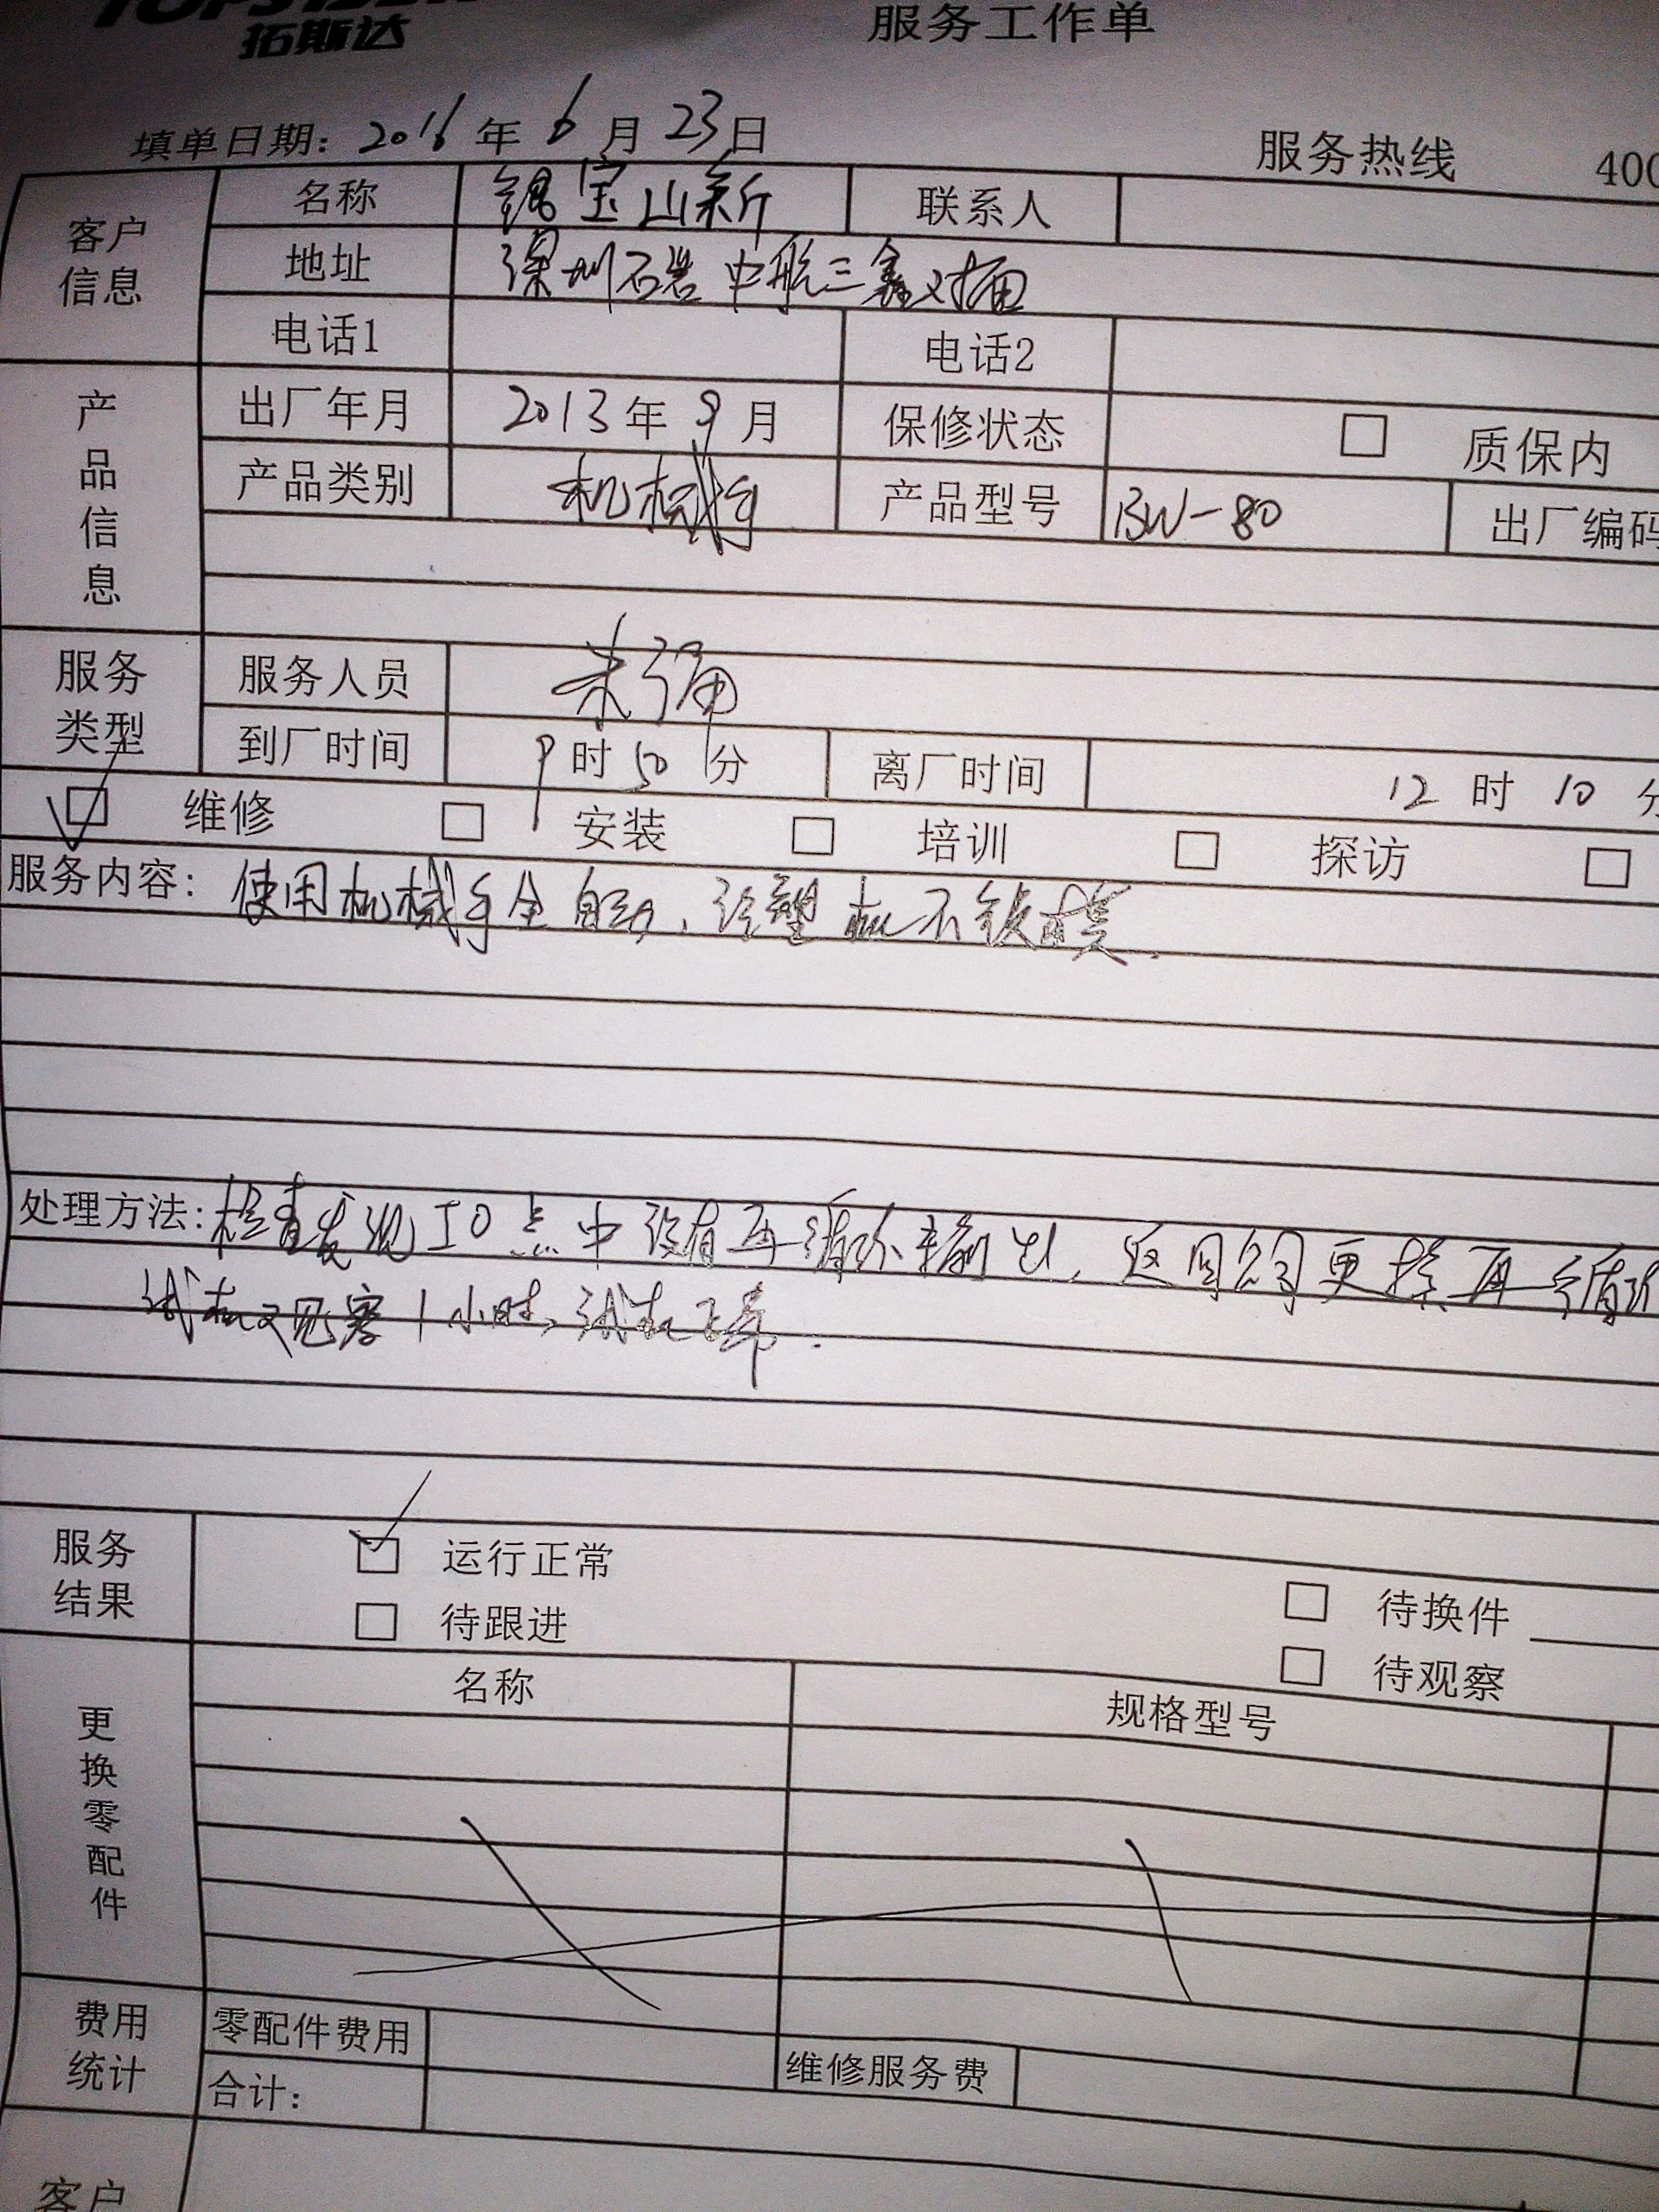 拓斯达
服务工作单
填单日期: 2016 年 6 月 23 日
服务热线 400
客户信息 名称 银宝山新 联系人
地址 深圳石岩中航三鑫对面
电话1 电话2
产品信息 出厂年月 2013 年 9 月 保修状态 □ 质保内
产品类别 机械手 产品型号 BW-80 出厂编码
服务类型 服务人员 朱强
到厂时间 9 时 50 分 离厂时间 12 时 10 分
□ 维修 □ 安装 □ 培训 □ 探访 □
服务内容: 使用机械手全自动,注塑机不锁模.
处理方法: 检查发现IO点中没有再循环输出,返回 更换再循环
试机观察1小时,试机正常.
服务结果 □ 运行正常 □ 待换件
□ 待跟进 □ 待观察
更换零配件 名称 规格型号
费用统计 零配件费用 维修服务费
合计:
客户